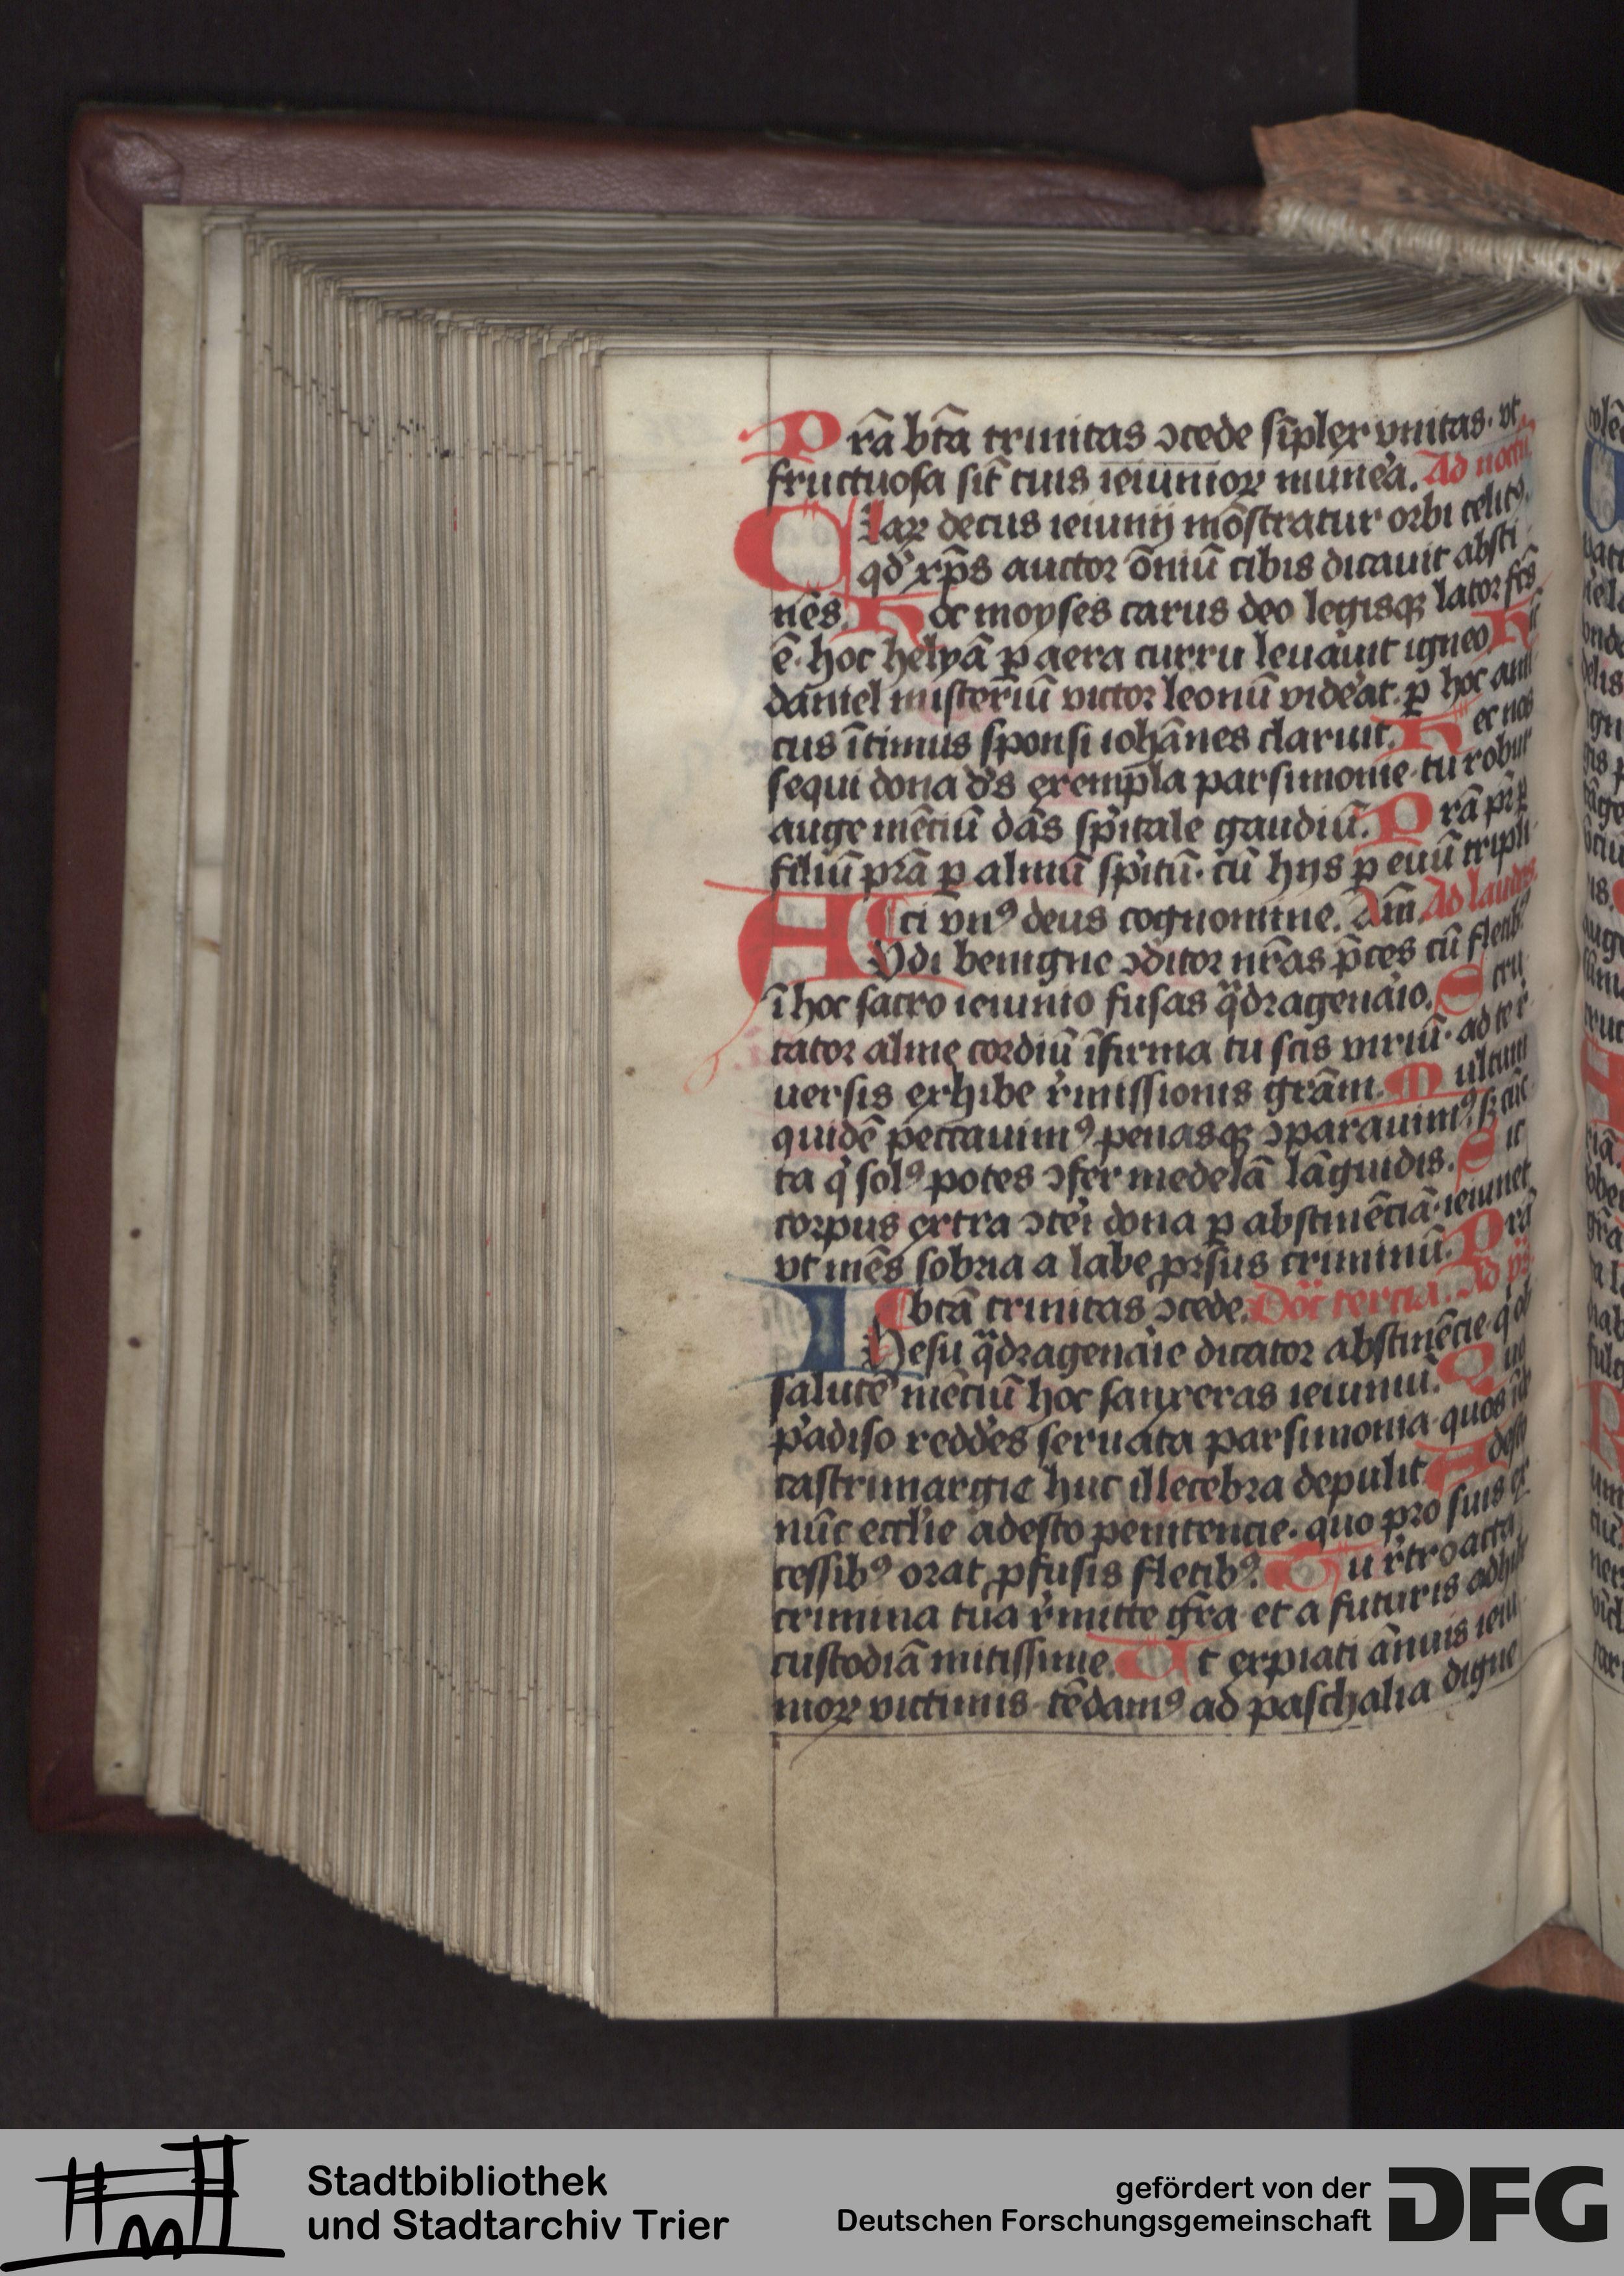 Prā btā trinitas ɔcede sīplex vnitas. vt
fructuosa sīt tuis ieiunioꝝ mun̾a. Ad noctū
Claꝝ decus ieiunij mōstratur orbi celitꝰ.
qđ xp̄s auctor ōniū cibis dicauit absti
nēs. Hoc moyses carus deo legisqꝫ lator fcs̄
ē. hoc helyā ꝑ aera curru leuauit igneo. Hīc
daniel misteriū victor leonū vid̾at. ꝑ hoc ami
cus ītimus sponsi iohānes claruit. Hec nos
sequi dona d̾s exempla parsimonie. tu robur
auge mēciū dās sp̄itale gaudiū. Prā pr̄ ꝑ
filiū prā ꝑ almū sp̄itū. cū hijs ꝑ euū tripli
ci vnꝰ deus cognomine. Am̄. Ad laudes.
AVdi benigne ɔditor nr̄as p̄ces cū fletibꝰ
ī hoc sacro ieiunio fusas q̄dragenaio. Scru
tator alme cordiū īfirma tu scis viriū. ad te r̾
uersis exhibe r̾missionis grām. Multum
quidē peccauimꝰ penasqꝫ ɔparauimꝰ. sꝫ cūc
ta q' solꝰ potes ɔfer medelā lāguidis. Sic
corpus extra ɔt̾i dona ꝑ abstinēciā. ieiunet
vt mēs sobria a labe ꝓrsus criminū. Prā
btā trinitas ɔcede. Doc̄ tercia. Ad vp̄s
IHesu q̄dragenaie dicator abstinēcie. q' ob
salutē mēciū hoc sanxeras ieiuniū. Quo
p̾adiso redd̾es seruata parsimonia. quos īde
castrimargie huc illecebra depulit. Adesto
nūc eccl'ie adesto penitencie. quo pro suis ex
cessibꝰ orat ꝓfusis fletibꝰ. Tu r̾troacta
crimina tua r̾mitte gr̄a. et a futuris adhibe
custodiā mitissime. Vt expiati ānuis ieiu
nioꝝ victimis. tēdamꝰ ad paschalia digne
Stadtbibliothek
und Stadtarchiv Trier
gefördert von der
Deutschen Forschungsgemeinschaft
DFG